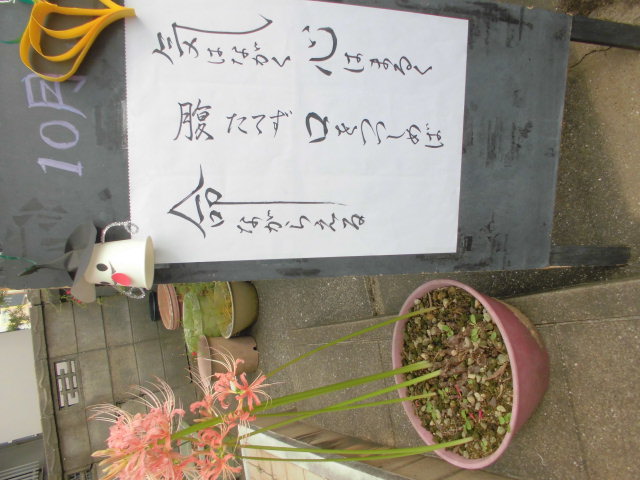 10月
気はながく 心はまるく
腹たてず 口をつつしめば
命ながらえる